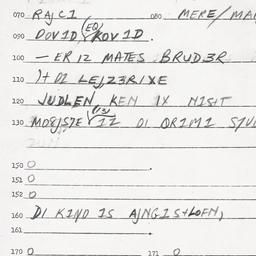 070 RAJCI 080 MERE/MA
(EO)
090 DOVID KOVID.
100 — ER IZ MATES BRUDER
110 )+ DI LEJZERIXE
120 JUDLEN, KEN IX NISHT
130 11 DI ORIMI
150 0 .
151 0
152 0
160 DI KIND IS AJNGISHLOFN,
161 .
170 0 171 0